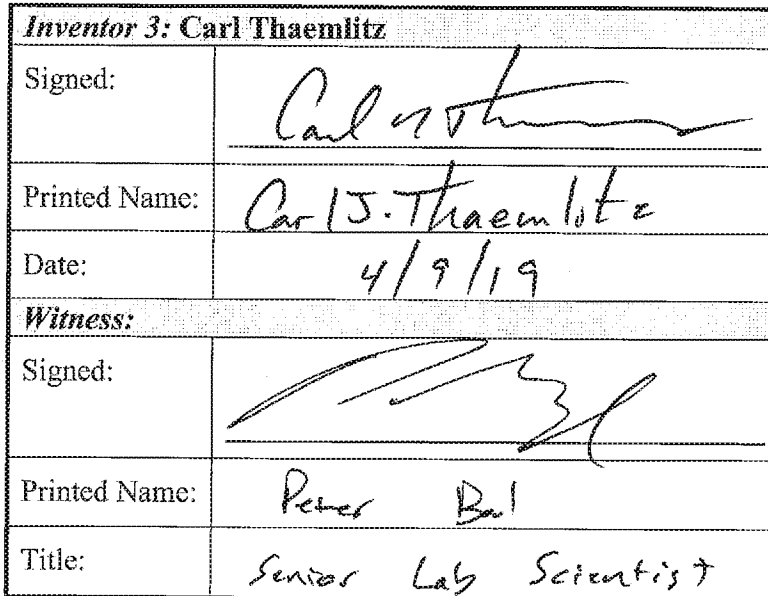 Inventor 3: Carl Thaemlitz
Signed: Carl J Th
Printed Name: Carl J. Thaemlitz
Date: 4/9/19
Witness:
Signed:
Printed Name: Peter
Title: Senior Lab Scientist